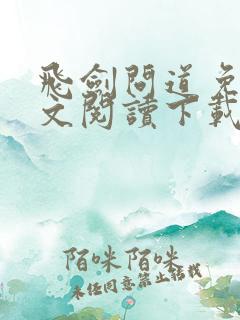 飛劍問道 免
文閱讀下載
陌咪陌咪
未任同意禁止轉載